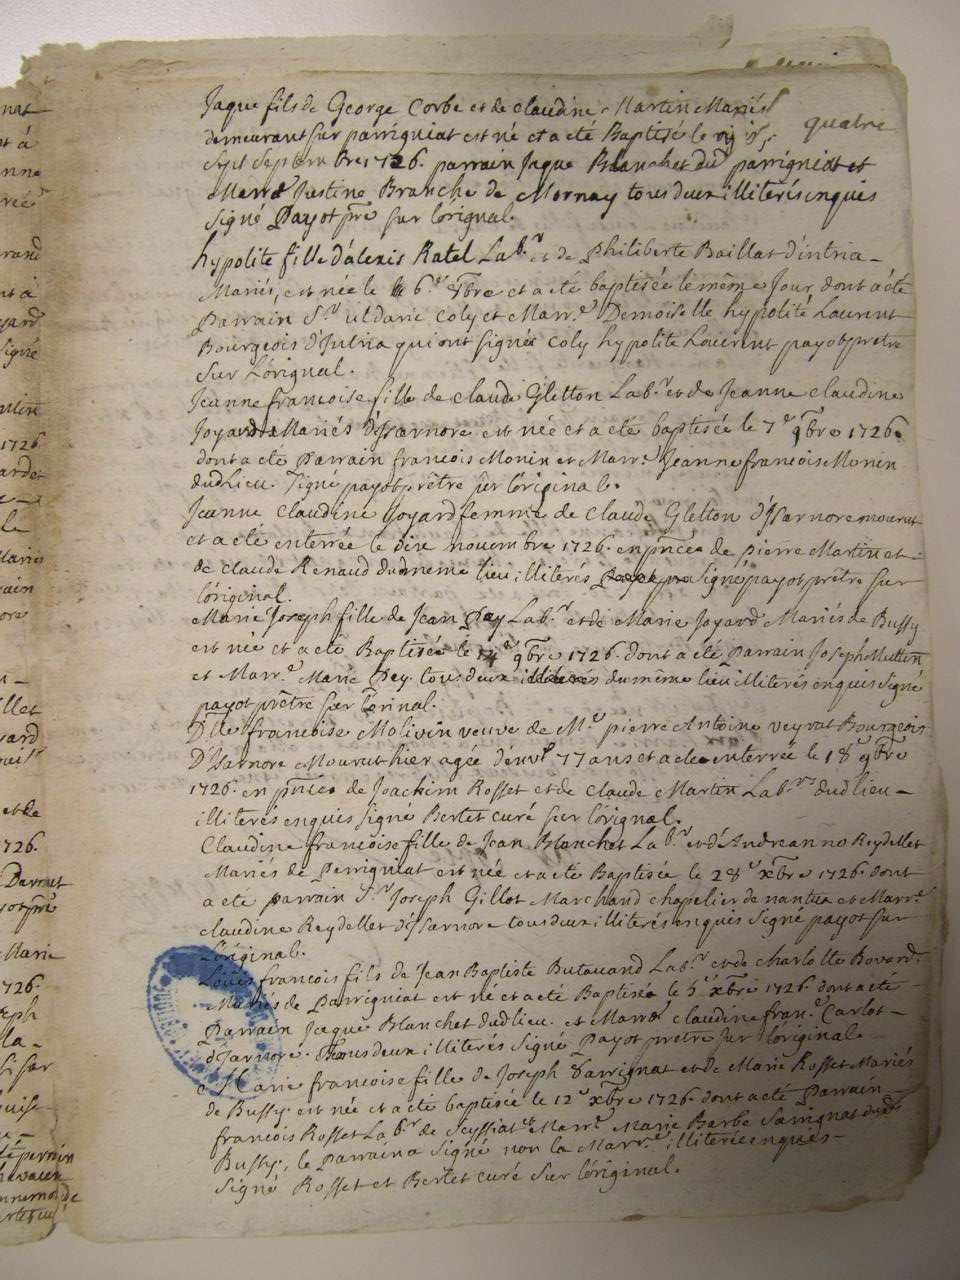 quatre
Jaque fils de George Corbe et de claudine Martin Mariés
demeurant sur parrigniat est né et a été Baptisé le
sept Septembre 1726. parrain Jaque Blanchet du parrigniat et
Marrᵉ Justine Branche de Mornay tous deux illiterés enquis
signé Payot ptre sur l'orignal.
hypolite fille d'alexis Ratel Lab.ʳ et de Philiberte Baillat d'intria
Mariés, est née le 6.ᵉ 9bre et a été baptisée le même Jour dont a été
Parrain S.ʳ uldaric Coly et Marr.ᵉ Demoiselle hypolite Laurent
Bourgeois d'Intria qui ont signée Coly hypolite Lourent payot prêtre
sur L'orignal.
Jeanne francoise fille de claude Gletton Lab.ʳ et de Jeanne claudine
Joyard Mariés d'Isarnore est née et a été baptisée le 7.ᵉ 9bre 1726.
dont a été Parrain francois Monin et Marr.ᵉ Jeanne francoise Monin
dud Lieu. signé payot prêtre sur l'original.
Jeanne Claudine Joyard femme de Claude Gletton d'Isarnore mourut
et a été enterrée le dix novembre 1726. en pnce de pierre Martin et
de claude Renaud du meme lieu illiterés signé payot prêtre sur
l'original.
Marie Joseph fille de Jean Pey Lab.ʳ et de Marie Joyard Mariés de Bussy
est né et a été Baptisée le 14ᵉ 9bre 1726. dont a été Parrain Joseph
et Marr.ᵉ Marie Pey tous deux du même lieu illiterés enquis signé
payot prêtre sur l'orinal.
D.lle francoise Molivin veuve de M.ʳ pierre Antoine veyrat Bourgeois
D'Isarnore Mourut hier agée d'env. 77 ans et a été interrée le 18.ᵉ 9bre
1726. en pnce de Joachim Rosset et de claude Martin Lab.ʳˢ dud lieu
illiterés enquis signé Bertet curé sur l'orignal.
Claudine francoise fille de Jean Blanchet Lab.ʳ et d'Andreanno Reydellet
Mariés de Perrigniat est née et a été Baptisée le 28.ᵉ xbre 1726. dont
a été parrain S.ʳ Joseph Gillot Marchand chapelier de nantua et Marr.ᵉ
claudine Reydellet d'Isarnore tous deux illiterés enquis signé payot sur
L'original.
Louis francois fils de Jean Baptiste Butavand Lab.ʳ et de charlotte Bovard
Mariés de Parrigniat est né et a été Baptisé le 5.ᵉ xbre 1726. dont a été
Parrain Jacque Blanchet dud lieu. et Marrᵉ claudine fran.ᵉ Carlot
d'Isarnore. Tous deux illiterés signé Payot prêtre sur l'original
Marie francoise fille de Joseph Sarrignat et de Marie Rosset Mariés
de Bussy. est née et a été baptisée le 12.ᵉ xbre 1726. dont a été Parrain
francois Rosset Lab.ʳ de Seyssiat et Marr.ᵉ Marie Barbe Sarrignat dud
Bussy, le Parrain a signé non la Marr.ᵉ illiterée enquis
signé Rosset et Bertet curé sur l'original.